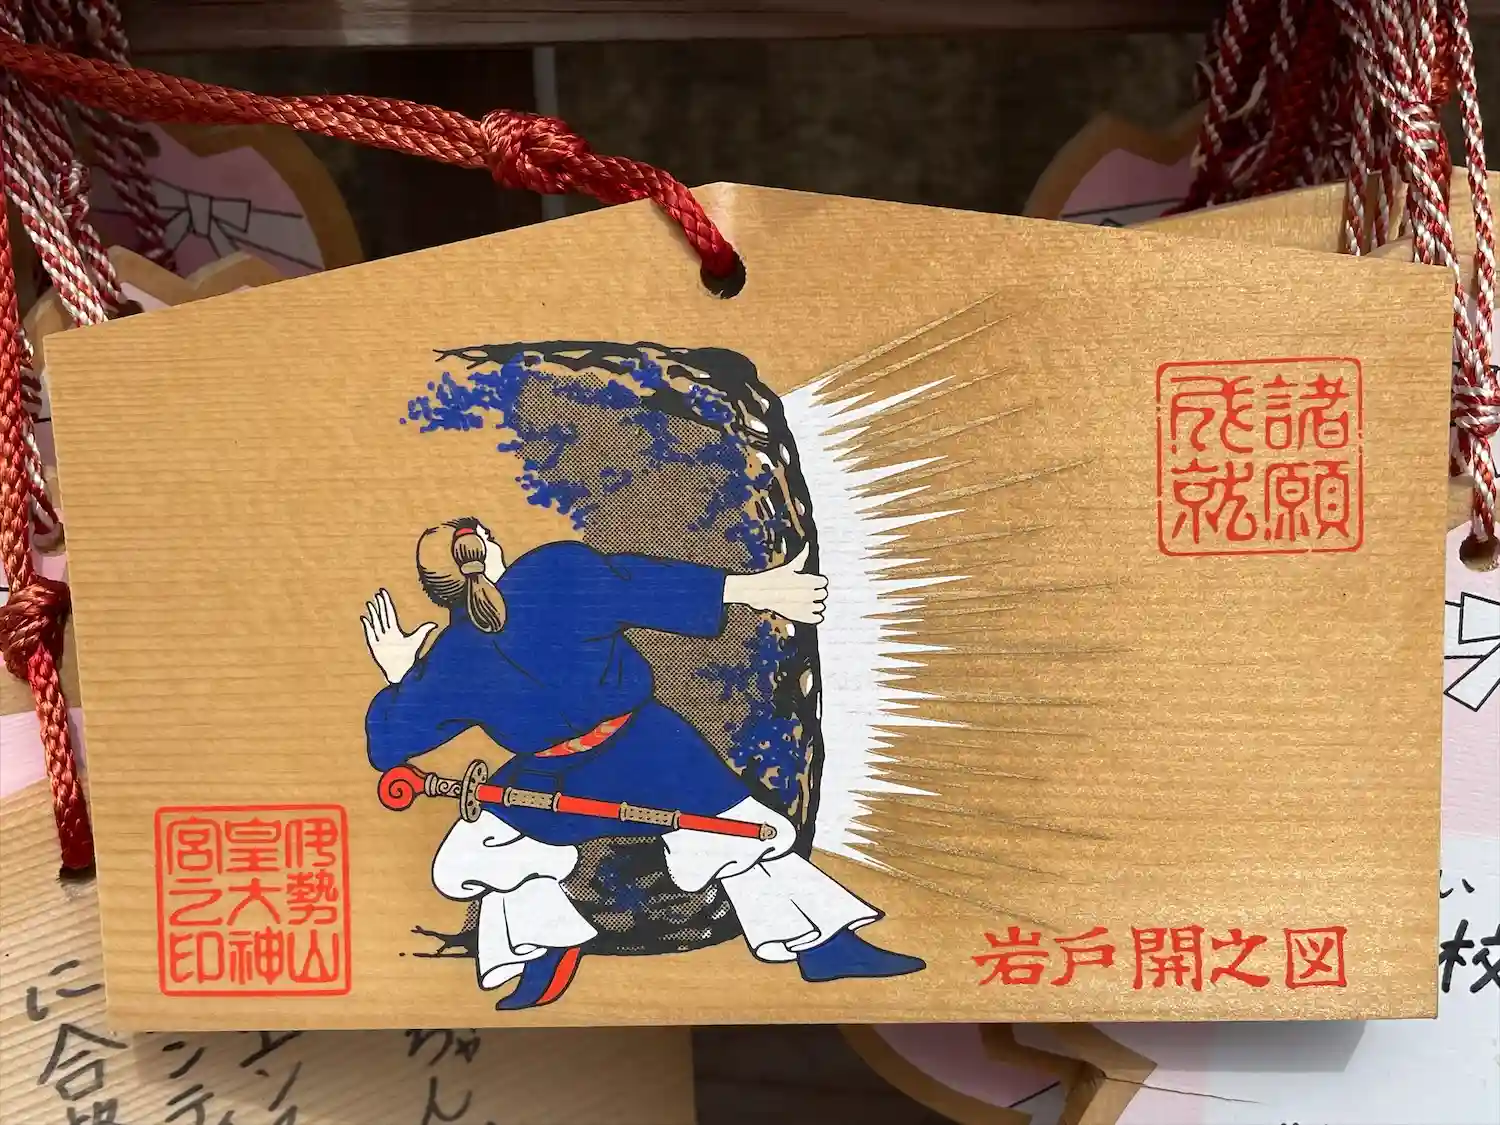 諸願
成就
伊勢山
皇大神
宮之印
岩戸開之図
に合
ンテ
エンス
ちゃん
い
校